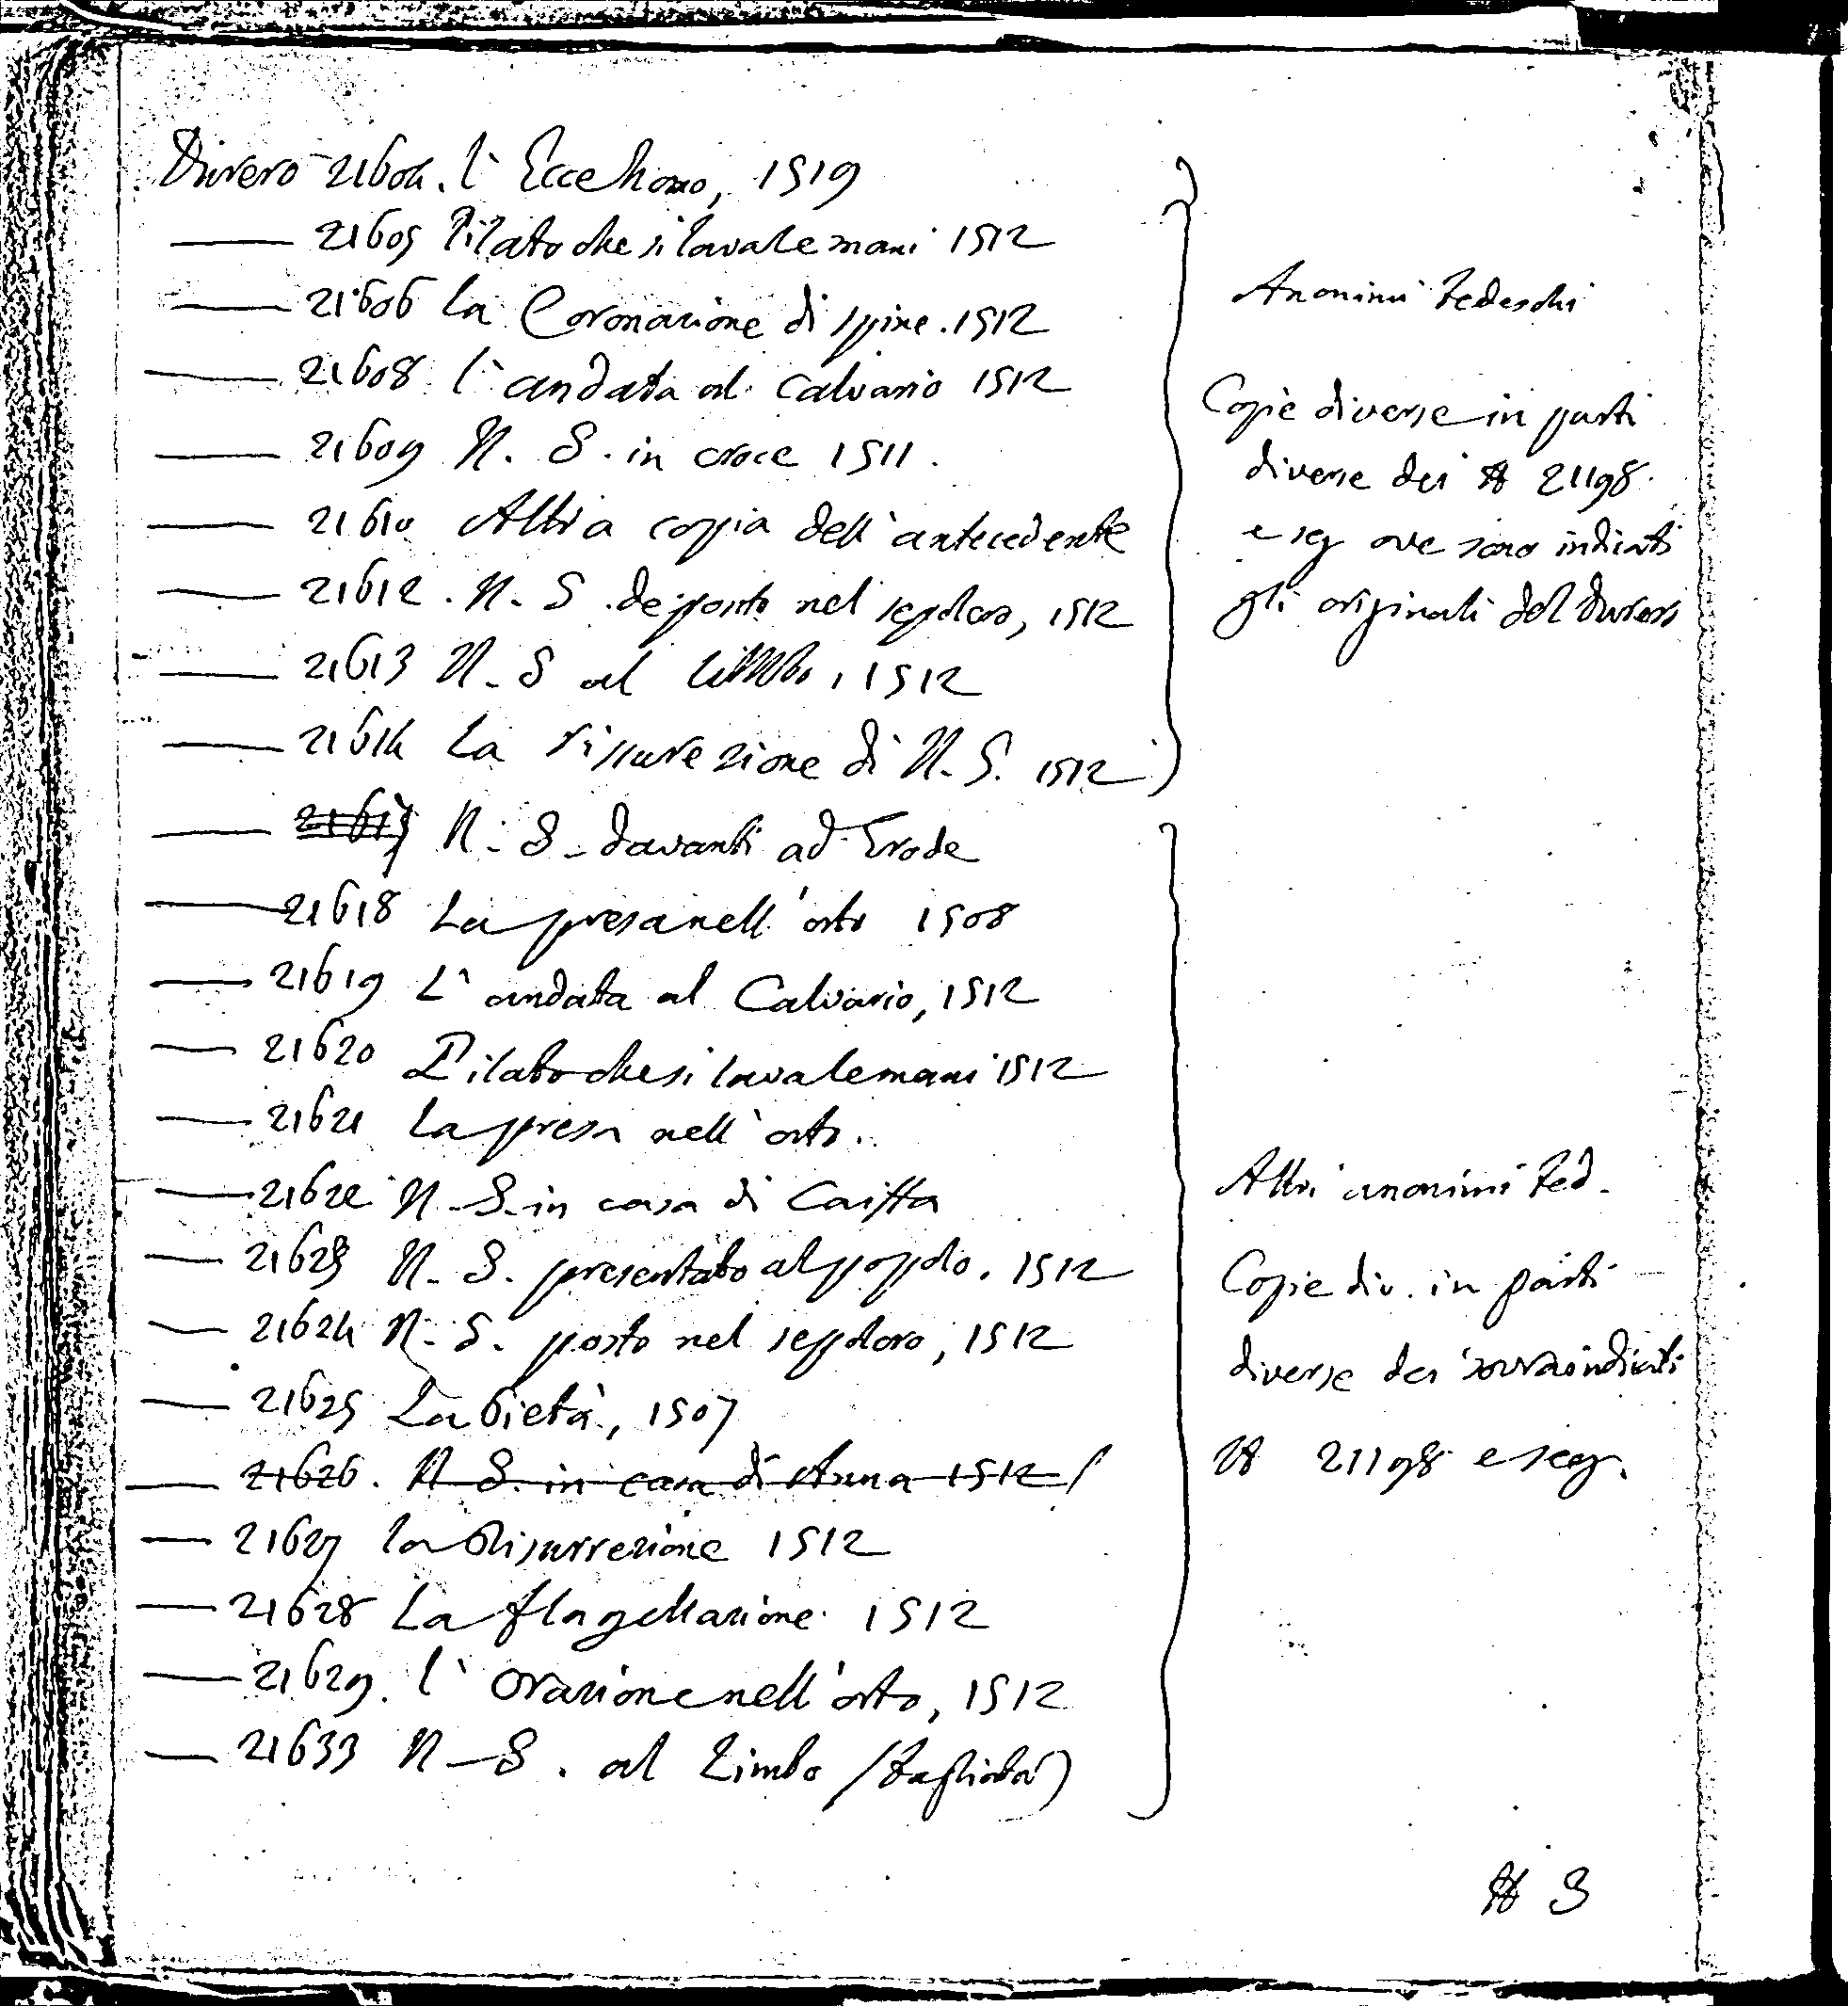 Durero 21604. l' Ecce homo, 1519
—— 21605 Pilato che si lava le mani 1512
—— 21606 La Coronazione di spine. 1512
—— 21608 l'andata al calvario 1512
—— 21609 N. S. in croce 1511.
—— 21610 Altra copia dell'antecedente
—— 21612. N. S. deposto nel sepolcro, 1512
—— 21613 N. S al limbo, 1512
—— 21614 La rissurezione di N. S. 1512
Anonimi tedeschi
Copie diverse in parti
diverse dei N 21198
e seg ove sono indicati
gli originali del Durero
—— 21617 N. S. davanti ad Erode
—— 21618 La presa nell'orto 1508
—— 21619 L'andata al Calvario, 1512
—— 21620 Pilato che si lava le mani 1512
—— 21621 La presa nell'orto.
—— 21622 N. S. in casa di Caiffa
—— 21623 N. S. presentato al popolo. 1512
—— 21624 N. S. posto nel sepolcro, 1512
—— 21625 La Pietà, 1507
—— 21626. N S. in casa di Anna 1512
—— 21627 la Risurrezione 1512
—— 21628 La flagellazione 1512
—— 21629. l'Orazione nell'orto, 1512
—— 21633 N. S. al Limbo (tagliata)
Altri anonimi Ted.
Copie div. in parti
diverse dei sovraindicati
N 21198 e seg.
N 3